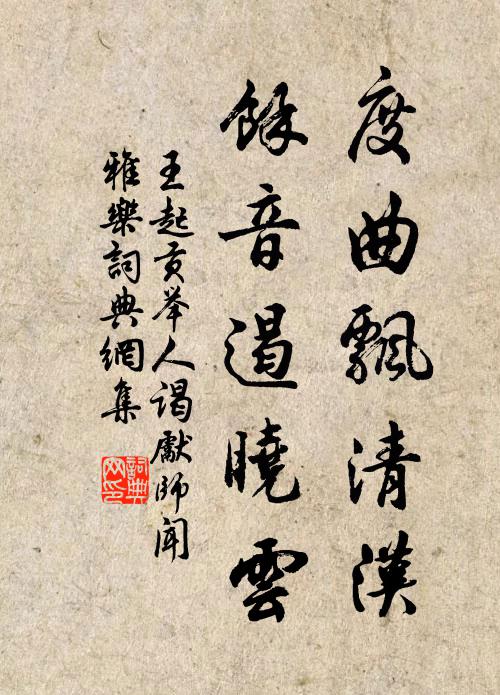 度曲飄清漢
餘音遏曉雲
王起貢舉人謁獻師聞
雅樂詞典網集
詞典網印